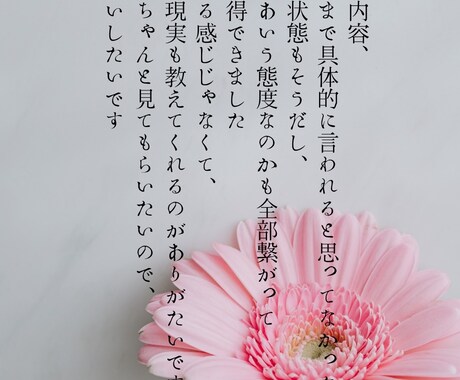 内容、
まで具体的に言われると思ってなかった
状態もそうだし、
あいう態度なのかも全部繋がって
得できました
る感じじゃなくて、
現実も教えてくれるのがありがたいです
ちゃんと見てもらいたいので、
いしたいです